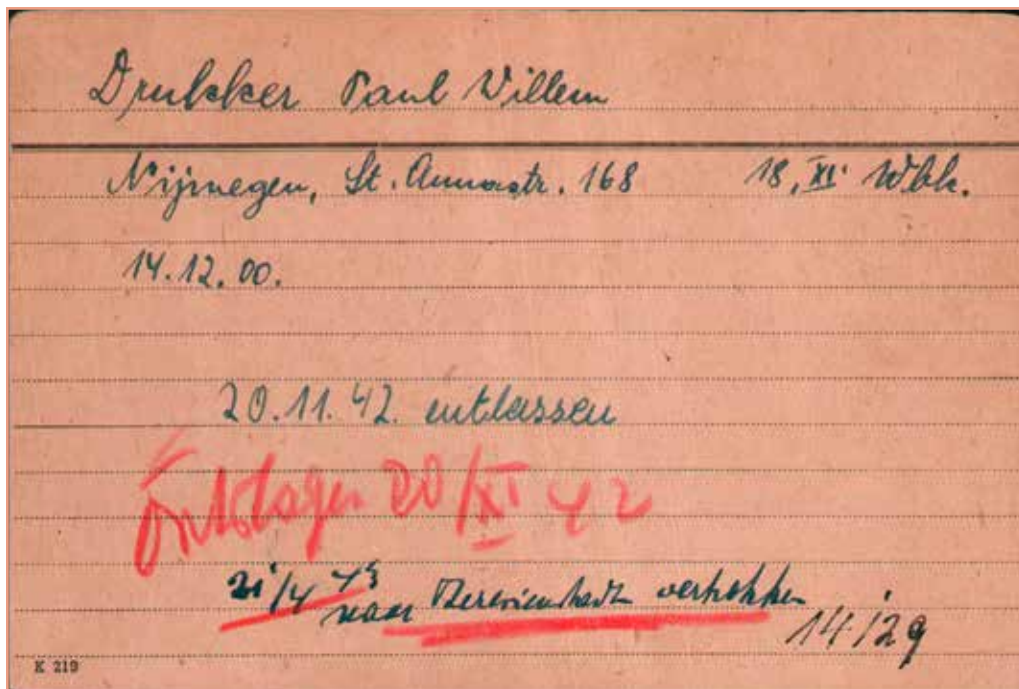 Drukker Paul Willem
Nijmegen, St. Annastr. 168 18, XI. Wbk.
14.12.00.
20.11.42. entlassen
Ontslagen 20/XI 42
21/4 43
naar Theresienstadt vertrokken
14/29
K 219